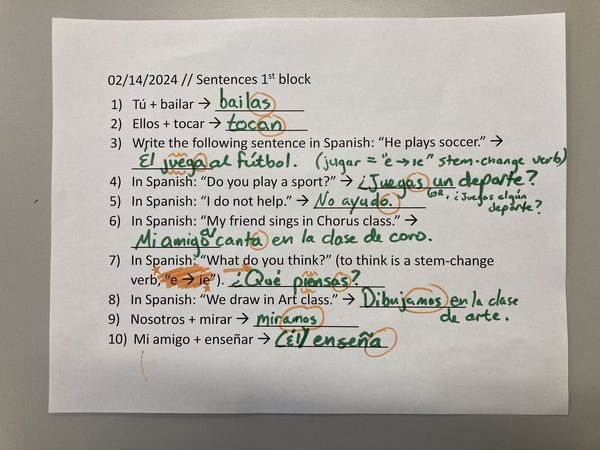 02/14/2024 // Sentences 1st block
1) Tú + bailar → bailas
2) Ellos + tocar → tocan
3) Write the following sentence in Spanish: "He plays soccer." →
Él juega al fútbol. (jugar = "e → ie" stem-change verb)
4) In Spanish: "Do you play a sport?" → ¿Juegas un deporte?
OR, ¿Juegas algún
deporte?
5) In Spanish: "I do not help." → No ayudo.
6) In Spanish: "My friend sings in Chorus class." →
Mi amigo/a canta en la clase de coro.
7) In Spanish: "What do you think?" (to think is a stem-change
verb, "e → ie"). ¿Qué piensas?
8) In Spanish: "We draw in Art class." → Dibujamos en la clase
de arte.
9) Nosotros + mirar → miramos
10) Mi amigo + enseñar → (Él) enseña